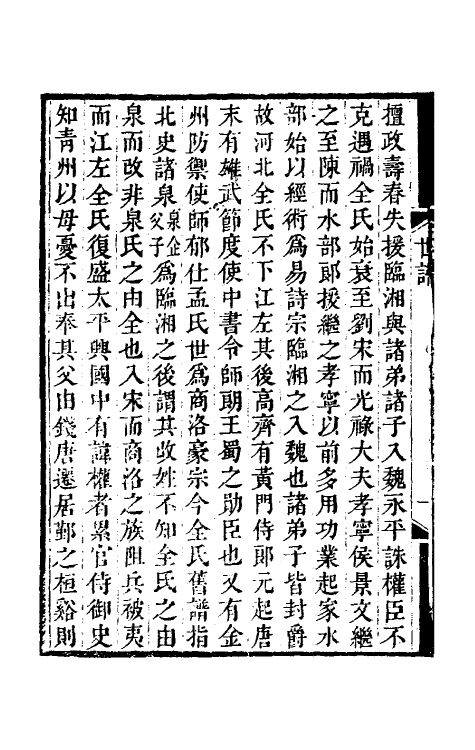 擅政壽春失援臨湘與諸弟諸子入魏永平誅權臣不
克遇禍全氏始衰至劉宋而光祿大夫孝寧侯景文繼
之至陳而水部郎援繼之孝寧以前多用功業起家水
部始以經術爲易詩宗臨湘之入魏也諸弟子皆封爵
故河北全氏不下江左其後高齊有黃門侍郎元起唐
末有雄武節度使中書令師朗王蜀之勛臣也又有金
州防禦使師郁仕孟氏世爲商洛豪宗今全氏舊譜指
北史諸泉泉企父子爲臨湘之後謂其改姓不知全氏之由
泉而改非泉氏之由全也入宋而商洛之族阻兵被夷
而江左全氏復盛太平興國中有諱權者累官侍御史
知青州以母憂不出奉其父由錢唐遷居鄞之桓谿則
世譜
一